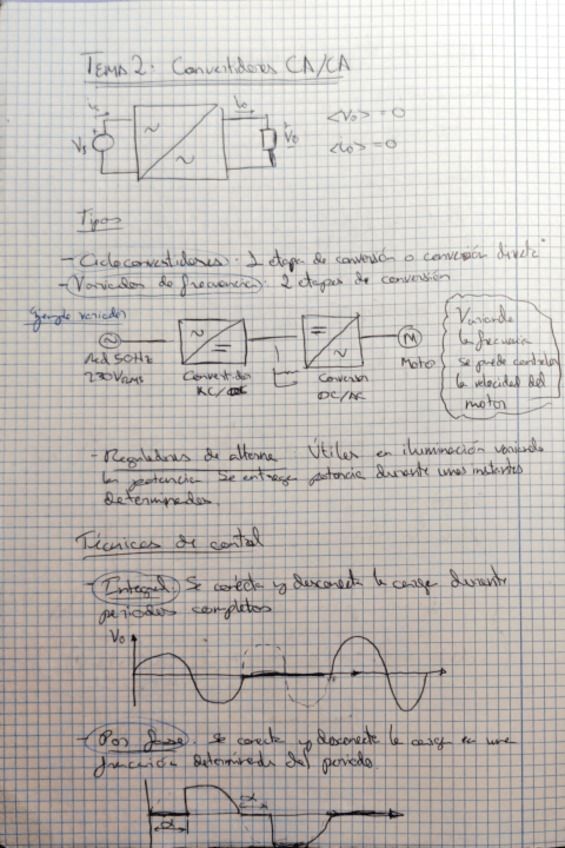 TEMA 2: Convertidores CA/CA
is
io
Vs
~
~
Vo
<Vo> = 0
<io> = 0
Tipos
- Cicloconvertidores: 1 etapa de conversión o conversión directa
- Variador de frecuencia: 2 etapas de conversión
Ejemplo variador
~
~
=
=
~
M
Red 50Hz
230VRMS
Convertidor
AC/DC
Conversor
DC/AC
Motor
Variando
la frecuencia
se puede controlar
la velocidad del
motor
- Reguladores de alterna: Útiles en iluminación variando
la potencia. Se entrega potencia durante unos instantes
determinados.
Técnicas de control
- Integral: Se conecta y desconecta la carga durante
periodos completos
Vo
- Por fase: se conecta y desconecta la carga en una
fracción determinada del periodo.
α
α